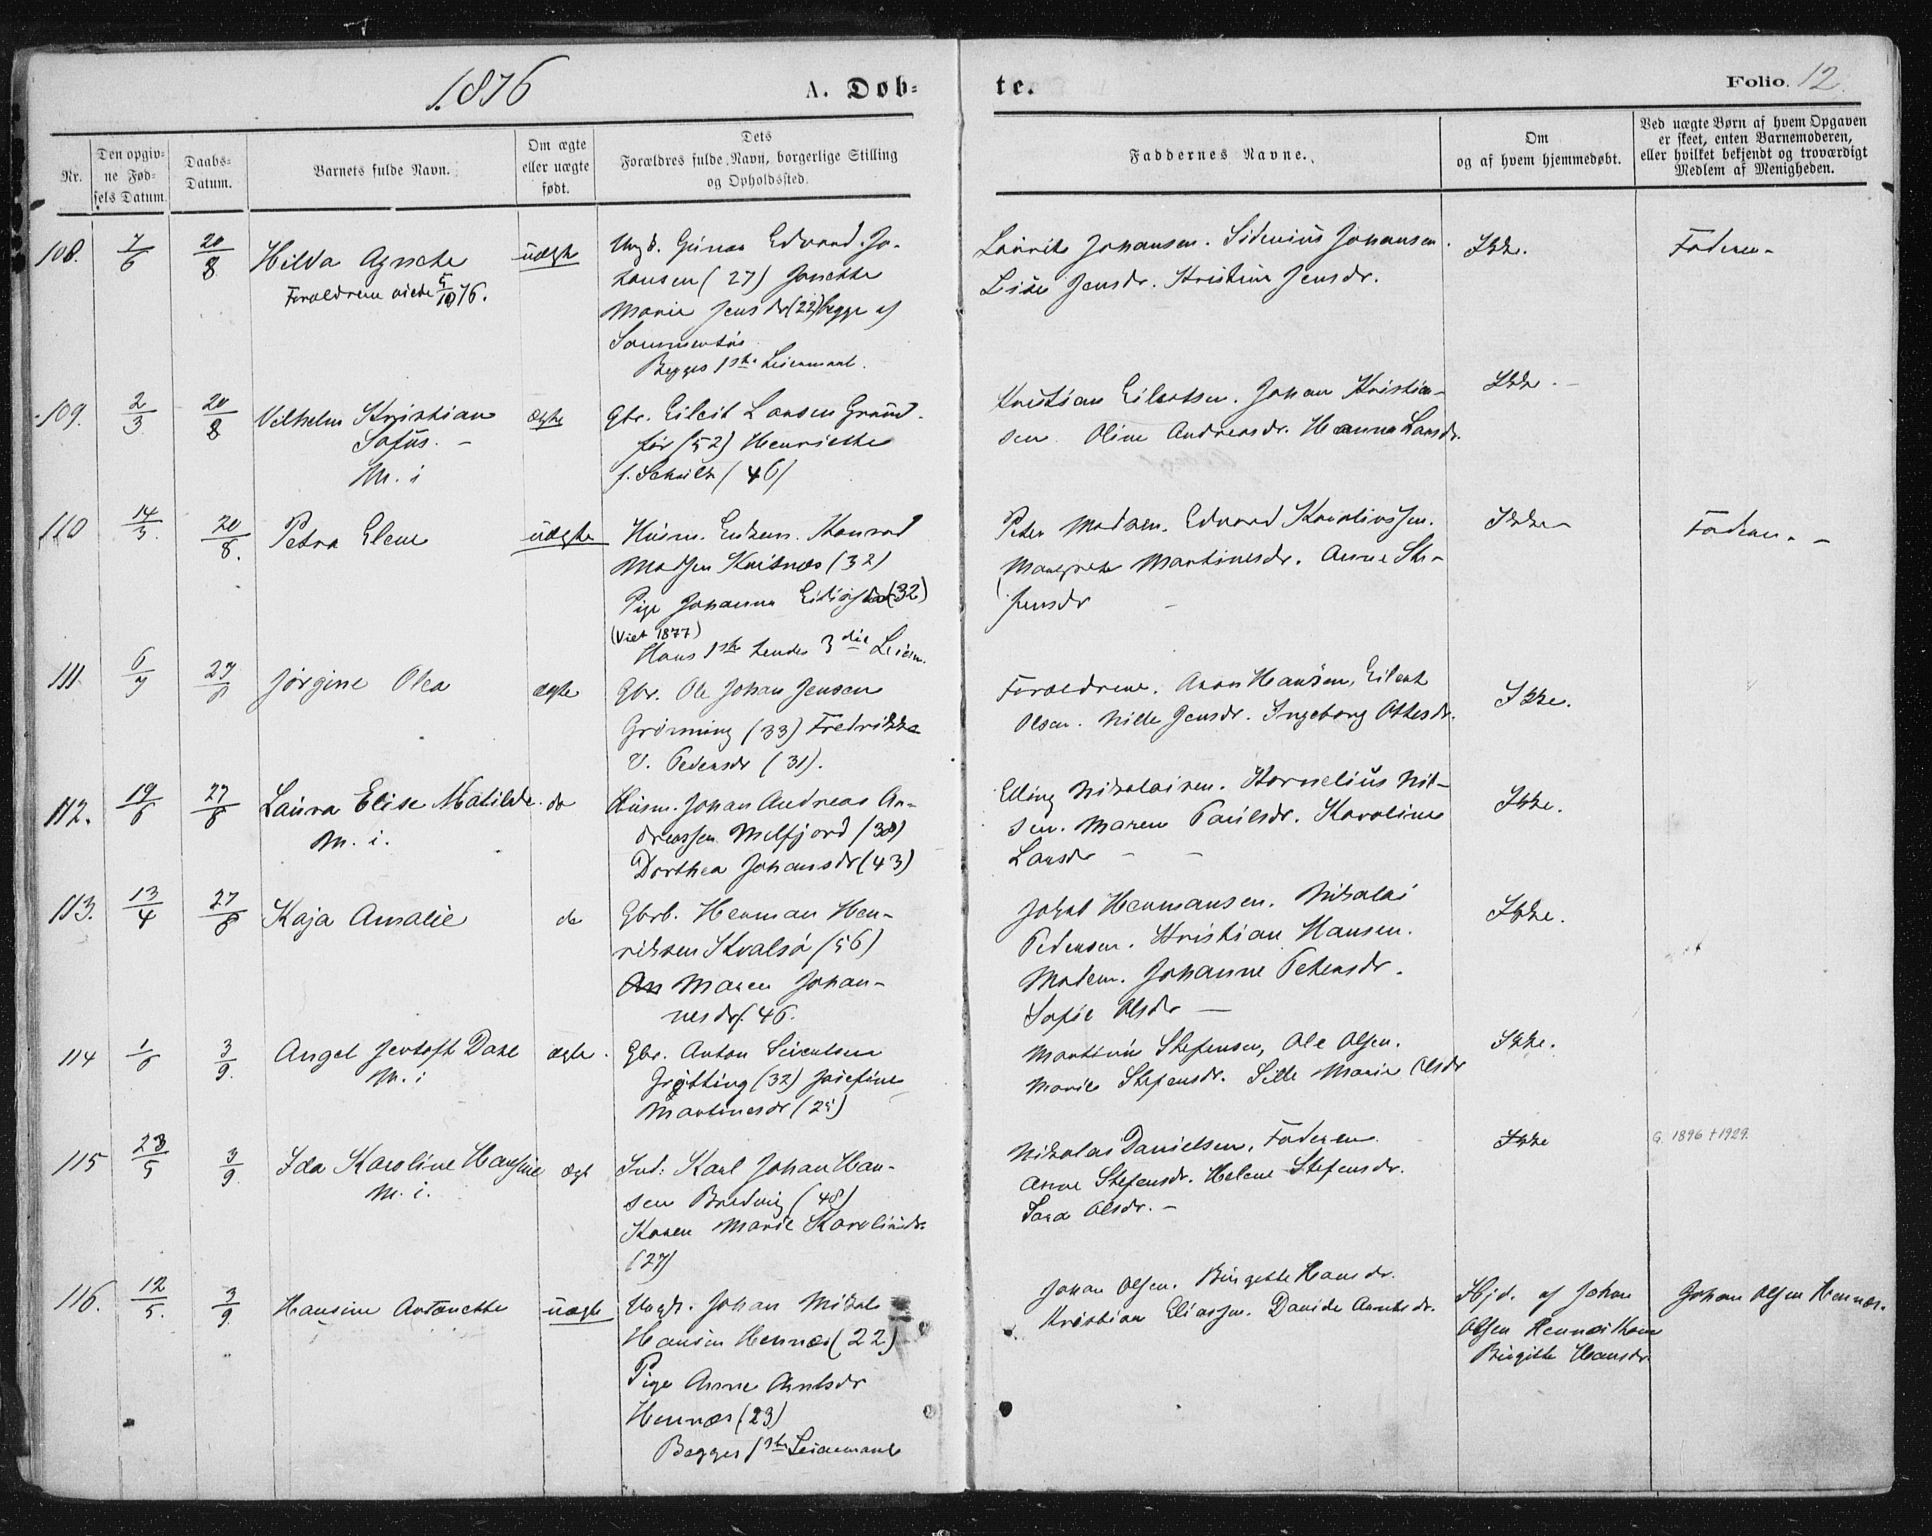 1876
A. Døb-
te.
Folio. 12.
Nr.
Den opgiv-
ne Fød-
sels Datum.
Daabs-
Datum.
Barnets fulde Navn.
Om ægte
eller uægte
født.
Dets
Forældres fulde Navn, borgerlige Stilling
og Opholdssted.
Faddernes Navne.
Om
og af hvem hjemmedøbt.
Ved uægte Børn af hvem Opgaven
er skeet, enten Barnemoderen,
eller hvilket bekjendt og troværdigt
Medlem af Menigheden.
108. 7/6 20/8 Hilda Agnete uægte
Forældrene viede 5/10 76.
Ungk. Edvard Jo-
hansen (27) Jonette
Marie Jensdr (22) begge af
Begges 1ste Leiermaal.
Laurits Johansen. Sidenius Johansen.
Lise Jensdr. Kristine Jensdr.
Ikke.
Faderen-
109. 2/3 20/8 Vilhelm Kristian ægte
Sofus. -
M. i
Gbr. Eilert Larsen Grund-
før (52) Henriette
f. Schultz (46)
Kristian Eilertsen. Johan Kristian-
sen Oline Andreasdr. Hanna Larsdr.
Ikke -
110 14/3. 20/8. Petra Elene uægte
Husm. Enkem. Konrad
Madsen Kvitnæs (32)
Pige Johanna (32)
(Viet 1877)
Hans 1ste hendes 3die Leierm.
Peter Madsen. Edvard
Margrete Martinesdr. Anne Ste-
fensdr -
Ikke-
Faderen. -
111. 6/7 27/8 Jørgine Olea ægte
Gbr. Ole Johan Jensen
Grønning (33) Fredrikke
V. Pedersdr (31).
Forældrene. Aron Hansen, Eilert
Olsen. Nille Jensdr. Ingeborg Ottesdr.
Ikke.
112. 19/6 27/8 Laura Elise Matilde. do
M. i.
Husm. Johan Andreas An-
dreassen Melfjord (38)
Dorthea Johansdr (43)
Elling Nikolaisen. Kornelius Nil-
sen. Maren Paulsdr. Karoline
Larsdr - -
Ikke.
113. 13/4 27/8 Kaja Amalie do
Gbrb. Herman Hen-
riksen Kvalsø (56)
An Maren Johan-
nesdr. (46.
Jakob Hermansen. Nikolai
Pedersen. Kristian Hansen.
Madsen. Johanne Petersdr.
Sofie Olsdr -
Ikke.
114 1/6 3/9. Angel Jentoft Dahl ægte.
M. i
Gbr. Anton Sivertsen
Grøtting (32) Josefine
Martinesdr (25)
Martinus Stefensen, Ole Olsen.
Marie Stefensdr. Sille Marie Olsdr
Ikke.
115 23/5 3/9 Ida Karoline Hansine ægt
M. i.
Ind: Karl Johan Han-
sen Bredvig (48)
Karen Marie Karolinsdr.
(27)
Nikolai Danielsen. Faderen.
Anne Stefensdr. Helene Stefensdr.
Sara Olsdr. -
Ikke
G. 1896 † 1929.
116. 12/5. 3/9 Hansine Antonette uægte
Ungk. Johan Nikolai
Hansen Hennæs (22)
Pige Anne Arntsdr
Hennæs (23)
Begges 1ste Leiermaal
Johan Olsen. Birgitte Hansdr.
Kristian Eliassen. Davida Arntsdr.
Hjd. af Johan
Olsen Hennæs Kone
Birgitte Hansdr
Johan Olsen Hennæs.